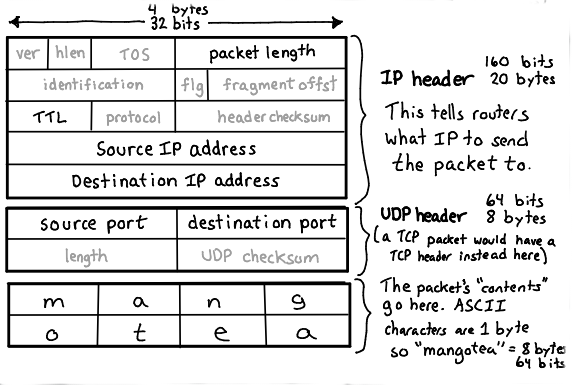 4 bytes
32 bits
ver hlen TOS packet length
identification flg fragment offst
TTL protocol header checksum
Source IP address
Destination IP address
160 bits
IP header 20 bytes
This tells routers
what IP to send
the packet to.
source port destination port
length UDP checksum
64 bits
UDP header 8 bytes
(a TCP packet would have a
TCP header instead here)
m a n g
o t e a
The packet's "contents"
go here. ASCII
characters are 1 byte
so "mangotea" = 8 bytes
64 bits